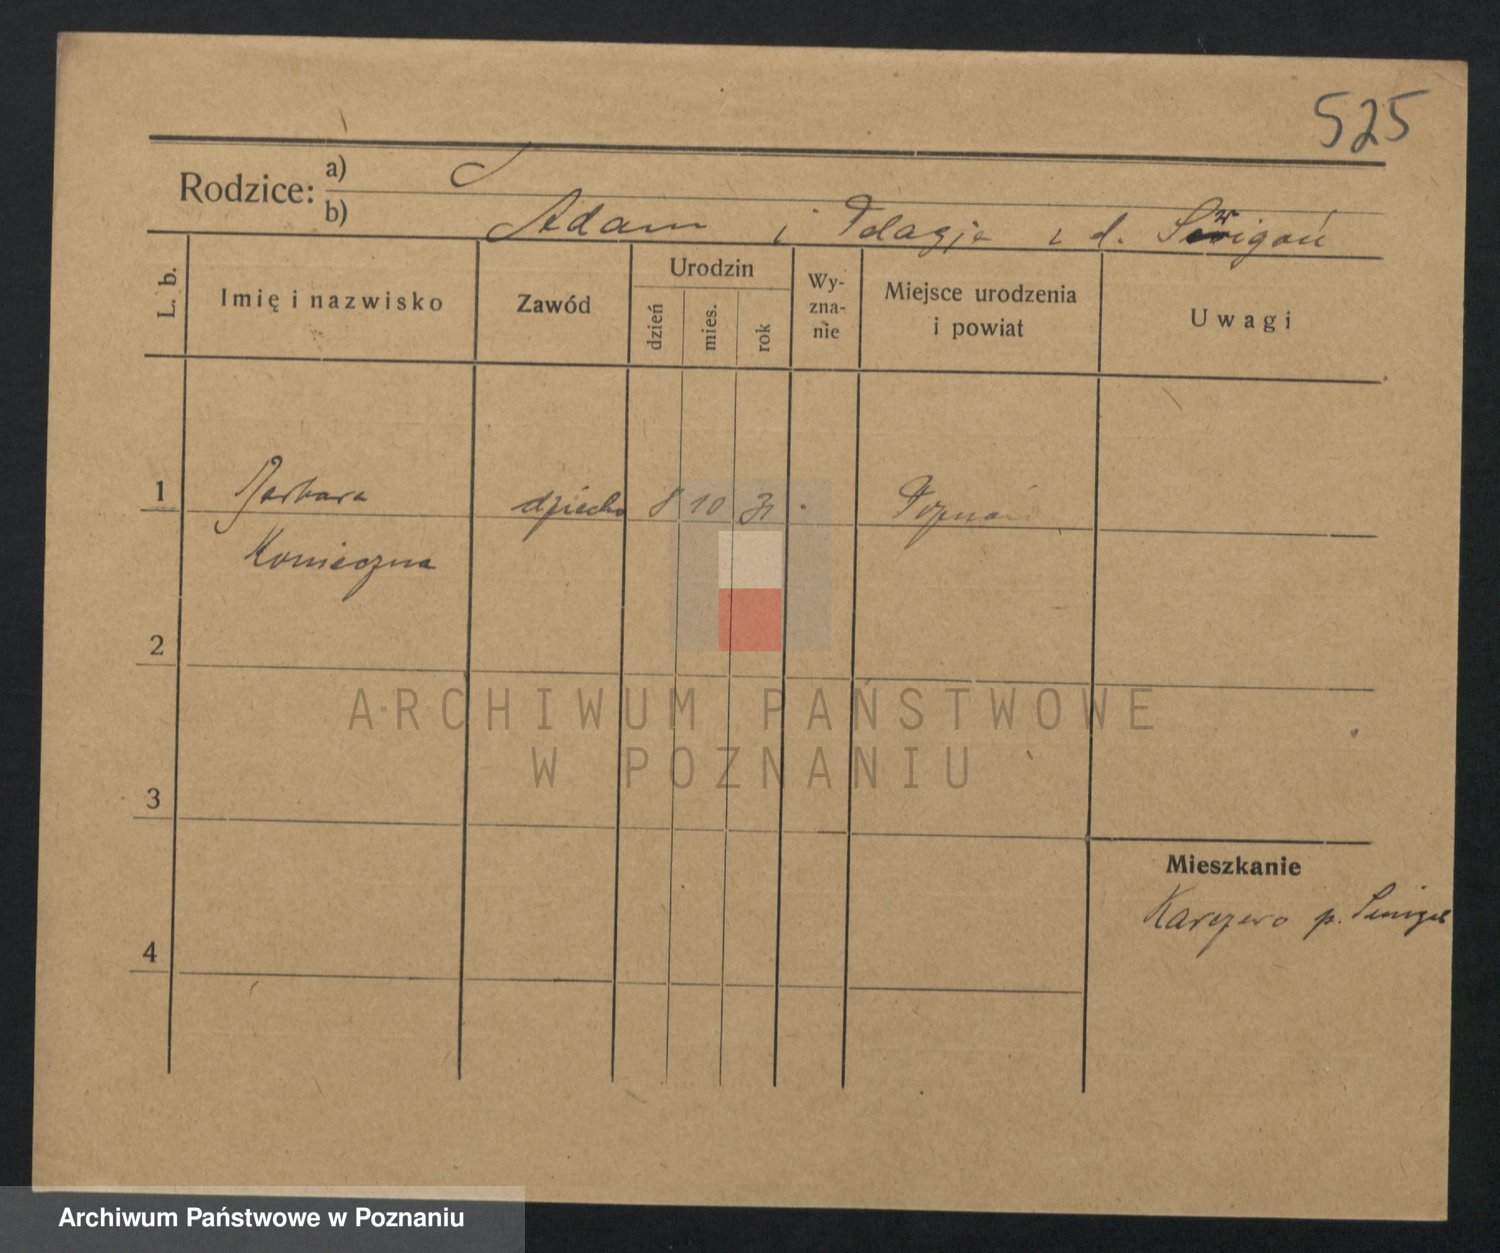 525
Rodzice: a)
b) Adam i Pelagja z d. Świgoń
L. b.
Imię i nazwisko
Zawód
Urodzin
dzień
mies.
rok
Wy-
zna-
nie
Miejsce urodzenia
i powiat
Uwagi
1 Barbara dziecko 8 10 31 Poznań
Konieczna
2
ARCHIWUM PAŃSTWOWE
W POZNANIU
3
Mieszkanie
Karczewo p.
4
Archiwum Państwowe w Poznaniu